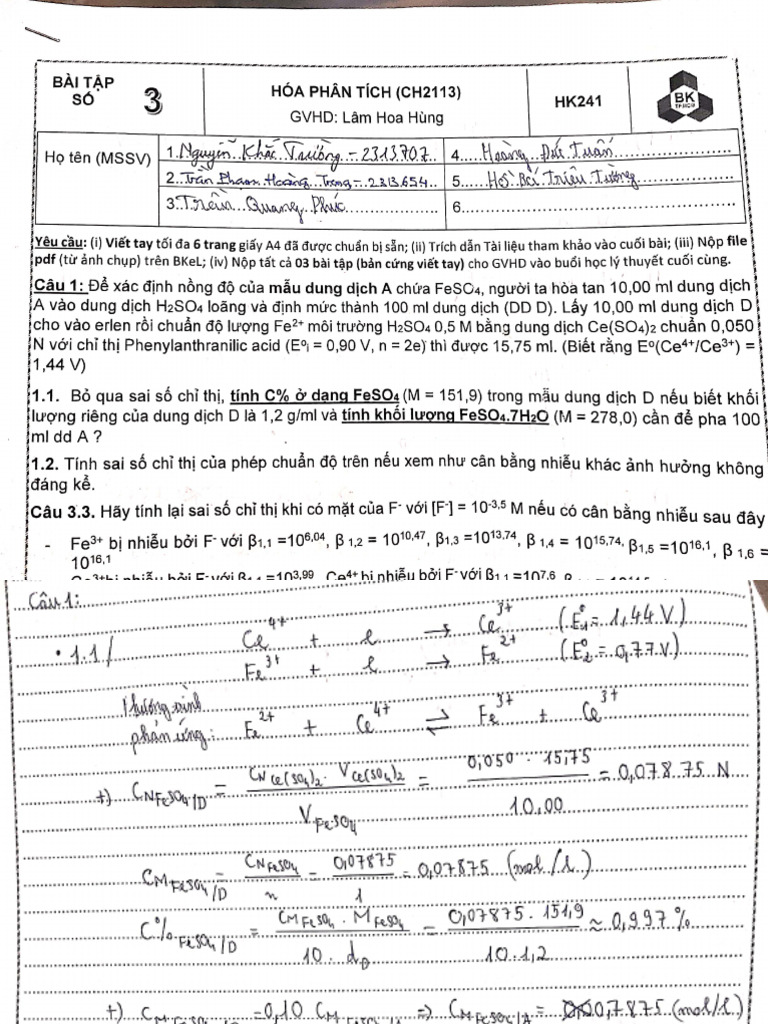 BÀI TẬP SỐ 3
HÓA PHÂN TÍCH (CH2113)
GVHD: Lâm Hoa Hùng
HK241
BK
TP.HCM
Họ tên (MSSV)
1. Nguyễn Khắc Trường - 2313707
4. Hoàng Đức Tuấn
2. Trần Phạm Hoàng Trọng - 2313654
5. Hồ Bái Triệu Tường
3. Trần Quang Phúc
6.
Yêu cầu: (i) Viết tay tối đa 6 trang giấy A4 đã được chuẩn bị sẵn; (ii) Trích dẫn Tài liệu tham khảo vào cuối bài; (iii) Nộp file
pdf (từ ảnh chụp) trên BKeL; (iv) Nộp tất cả 03 bài tập (bản cứng viết tay) cho GVHD vào buổi học lý thuyết cuối cùng.
Câu 1: Để xác định nồng độ của mẫu dung dịch A chứa FeSO₄, người ta hòa tan 10,00 ml dung dịch
A vào dung dịch H₂SO₄ loãng và định mức thành 100 ml dung dịch (DD D). Lấy 10,00 ml dung dịch D
cho vào erlen rồi chuẩn độ lượng Fe²⁺ môi trường H₂SO₄ 0,5 M bằng dung dịch Ce(SO₄)₂ chuẩn 0,050
N với chỉ thị Phenylanthranilic acid (Eºᵢ = 0,90 V, n = 2e) thì được 15,75 ml. (Biết rằng Eº(Ce⁴⁺/Ce³⁺) =
1,44 V)
1.1. Bỏ qua sai số chỉ thị, tính C% ở dạng FeSO₄ (M = 151,9) trong mẫu dung dịch D nếu biết khối
lượng riêng của dung dịch D là 1,2 g/ml và tính khối lượng FeSO₄.7H₂O (M = 278,0) cần để pha 100
ml dd A ?
1.2. Tính sai số chỉ thị của phép chuẩn độ trên nếu xem như cân bằng nhiễu khác ảnh hưởng không
đáng kể.
Câu 3.3. Hãy tính lại sai số chỉ thị khi có mặt của F⁻ với [F⁻] = 10⁻³,⁵ M nếu có cân bằng nhiễu sau đây
- Fe³⁺ bị nhiễu bởi F⁻ với β₁,₁ =10⁶,⁰⁴, β ₁,₂ = 10¹⁰,⁴⁷, β₁,₃ =10¹³,⁷⁴, β ₁,₄ = 10¹⁵,⁷⁴, β₁,₅ =10¹⁶,¹, β ₁,₆ =
10¹⁶,¹
Ce³⁺ bị nhiễu bởi F⁻ với β₁,₁ =10³,⁹⁹ Ce⁴⁺ bị nhiễu bởi F⁻ với β₁,₁ =10⁷,⁶
Câu 1:
• 1.1/ Ce⁴⁺ + e → Ce³⁺ (E₁º = 1,44 V)
Fe³⁺ + e → Fe²⁺ (E₂º = 0,77 V)
Phương trình
phản ứng: Fe²⁺ + Ce⁴⁺ ⇌ Fe³⁺ + Ce³⁺
+) C_N FeSO₄/D = (C_N Ce(SO₄)₂ . V Ce(SO₄)₂) / V FeSO₄ = (0,050 . 15,75) / 10,00 = 0,07875 N
C_M FeSO₄/D = C_N FeSO₄ / n = 0,07875 / 1 = 0,07875 (mol/l)
C% FeSO₄/D = (C_M FeSO₄ . M FeSO₄) / (10 . d_D) = (0,07875 . 151,9) / (10 . 1,2) ≈ 0,997 %
+) C_M FeSO₄/D = 0,10 C_M FeSO₄/A ⇒ C_M FeSO₄/A = 0,7875 (mol/l)